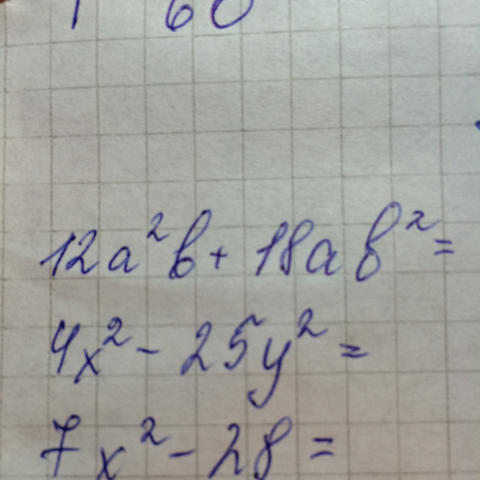 12a²b + 18ab² =
4x² - 25y² =
7x² - 28 =